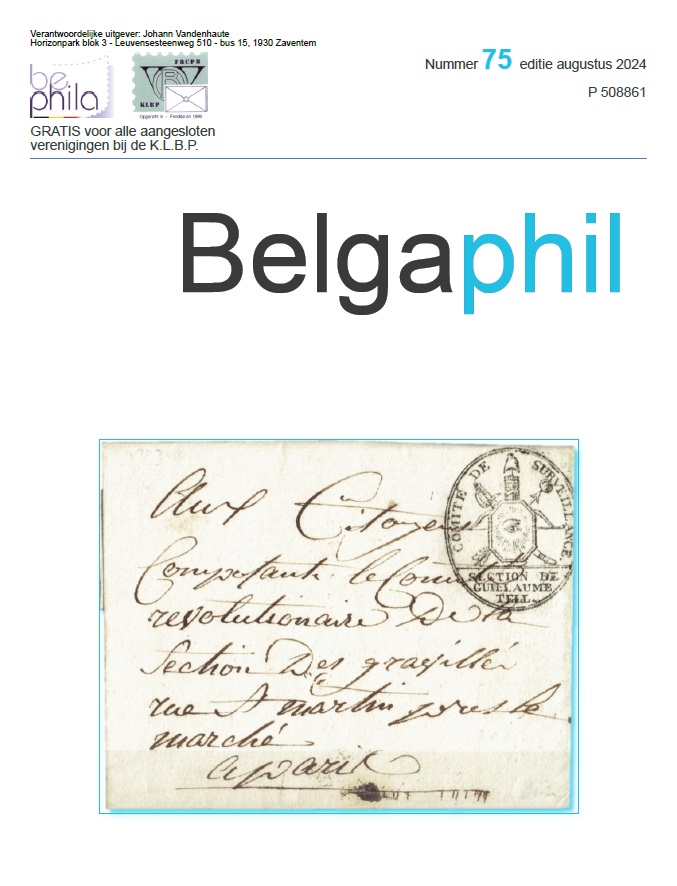 Verantwoordelijke uitgever: Johann Vandenhaute
Horizonpark blok 3 - Leuvensesteenweg 510 - bus 15, 1930 Zaventem
Nummer 75 editie augustus 2024
P 508861
be
phila
FRCPB
KLBP
GRATIS voor alle aangesloten
verenigingen bij de K.L.B.P.
Belgaphil
COMITÉ DE SURVEILLANCE.
SECTION DE
GUILLAUME
TELL.
Aux Citoyens
Composants le Comité
revolutionaire De la
Section Des gravillé
rue St martin pres le
marché
a paris